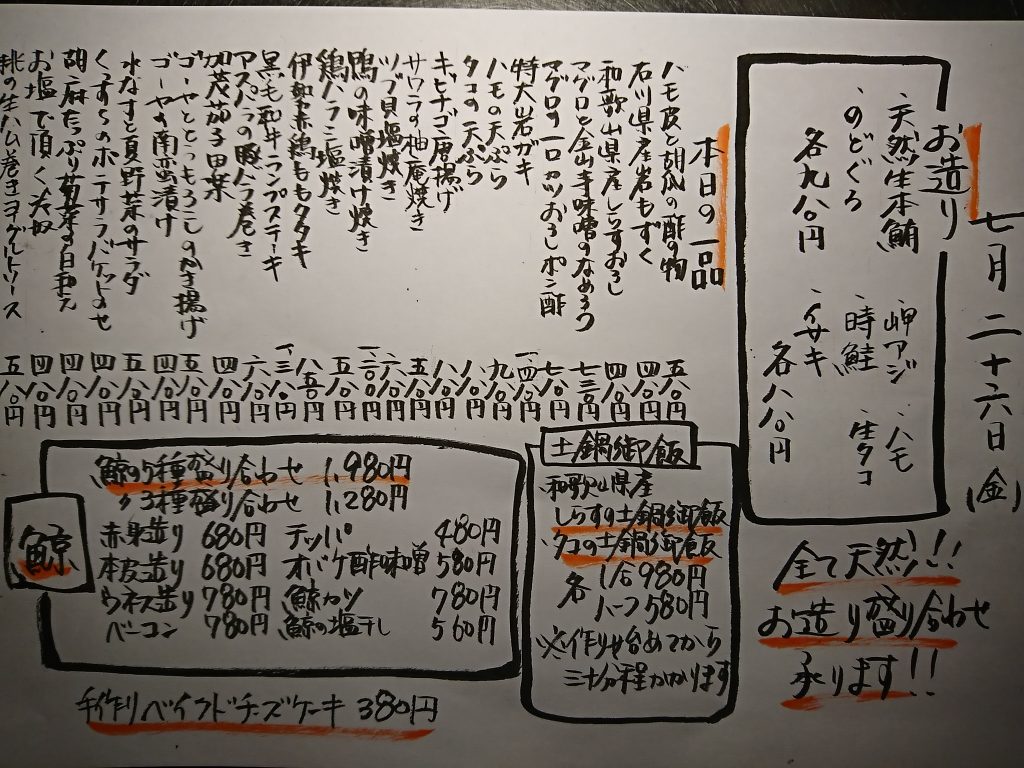 七月二十六日(金)
お造り
・天然生本鮪 ・岬アジ ・ハモ
・のどぐろ ・時鮭 ・生タコ
各九八〇円 ・イサキ
各八八〇円
全て天然!!
お造り盛り合わせ
承ります!!
本日の一品
ハモ皮と胡瓜の酢の物 五八〇円
石川県産岩もずく 四八〇円
和歌山県産しらすおろし 四八〇円
マグロと金山寺味噌のなめろう 七三〇円
マグロの一口カツおろしポン酢 七八〇円
特大岩ガキ 一、四八〇円
ハモの天ぷら 九八〇円
タコの天ぷら 八八〇円
キビナゴ唐揚げ 八八〇円
サワラの柚庵焼き 五八〇円
ツブ貝塩焼き 六八〇円
鴨の味噌漬け焼き
鶏ハラミ塩焼き 五八〇円
伊勢赤鶏ももタタキ 八五〇円
黒毛和牛ランプステーキ 一、三八〇円
アスパラの豚バラ巻き 六八〇円
加茂茄子田楽 四八〇円
ゴーヤととうもろこしのかき揚げ 五八〇円
ゴーヤの南蛮漬け 四八〇円
水なすと夏野菜のサラダ 四八〇円
くずらのポテサラバケットのせ 四八〇円
胡麻たっぷり菊菜の白和え 四八〇円
お塩で頂く冷奴 四八〇円
桃の生ハム巻きヨーグルトソース 五八〇円
土鍋御飯
和歌山県産
しらすの土鍋御飯
タコの土鍋御飯
各 1合980円
ハーフ580円
※作り始めてから
三十分程かかります
鯨
鯨の5種盛り合わせ 1,980円
〃3種盛り合わせ 1,280円
赤身造り 680円 テッパ 480円
本皮造り 680円 オバケ酢味噌 580円
ウネス造り 780円 鯨カツ 780円
ベーコン 780円 鯨の塩干し 560円
手作りベイクドチーズケーキ 380円